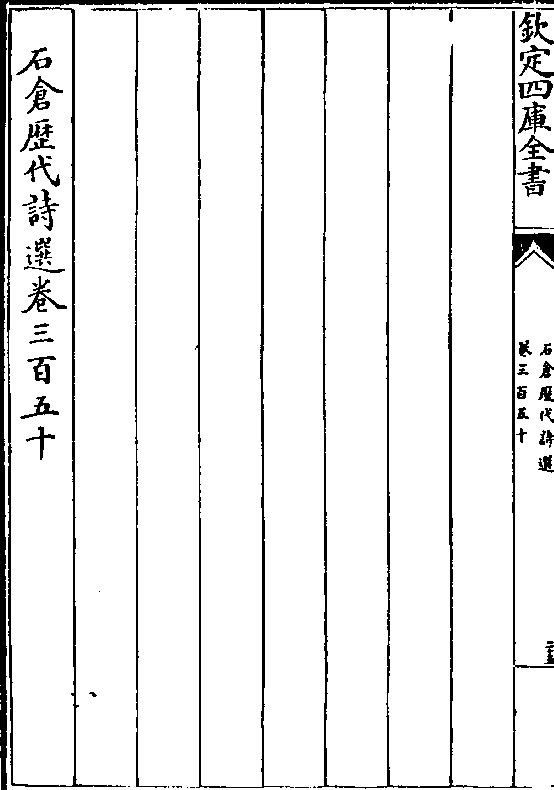 欽定四庫全書
石倉歷代詩選
卷三百五十
石倉歷代詩選卷三百五十